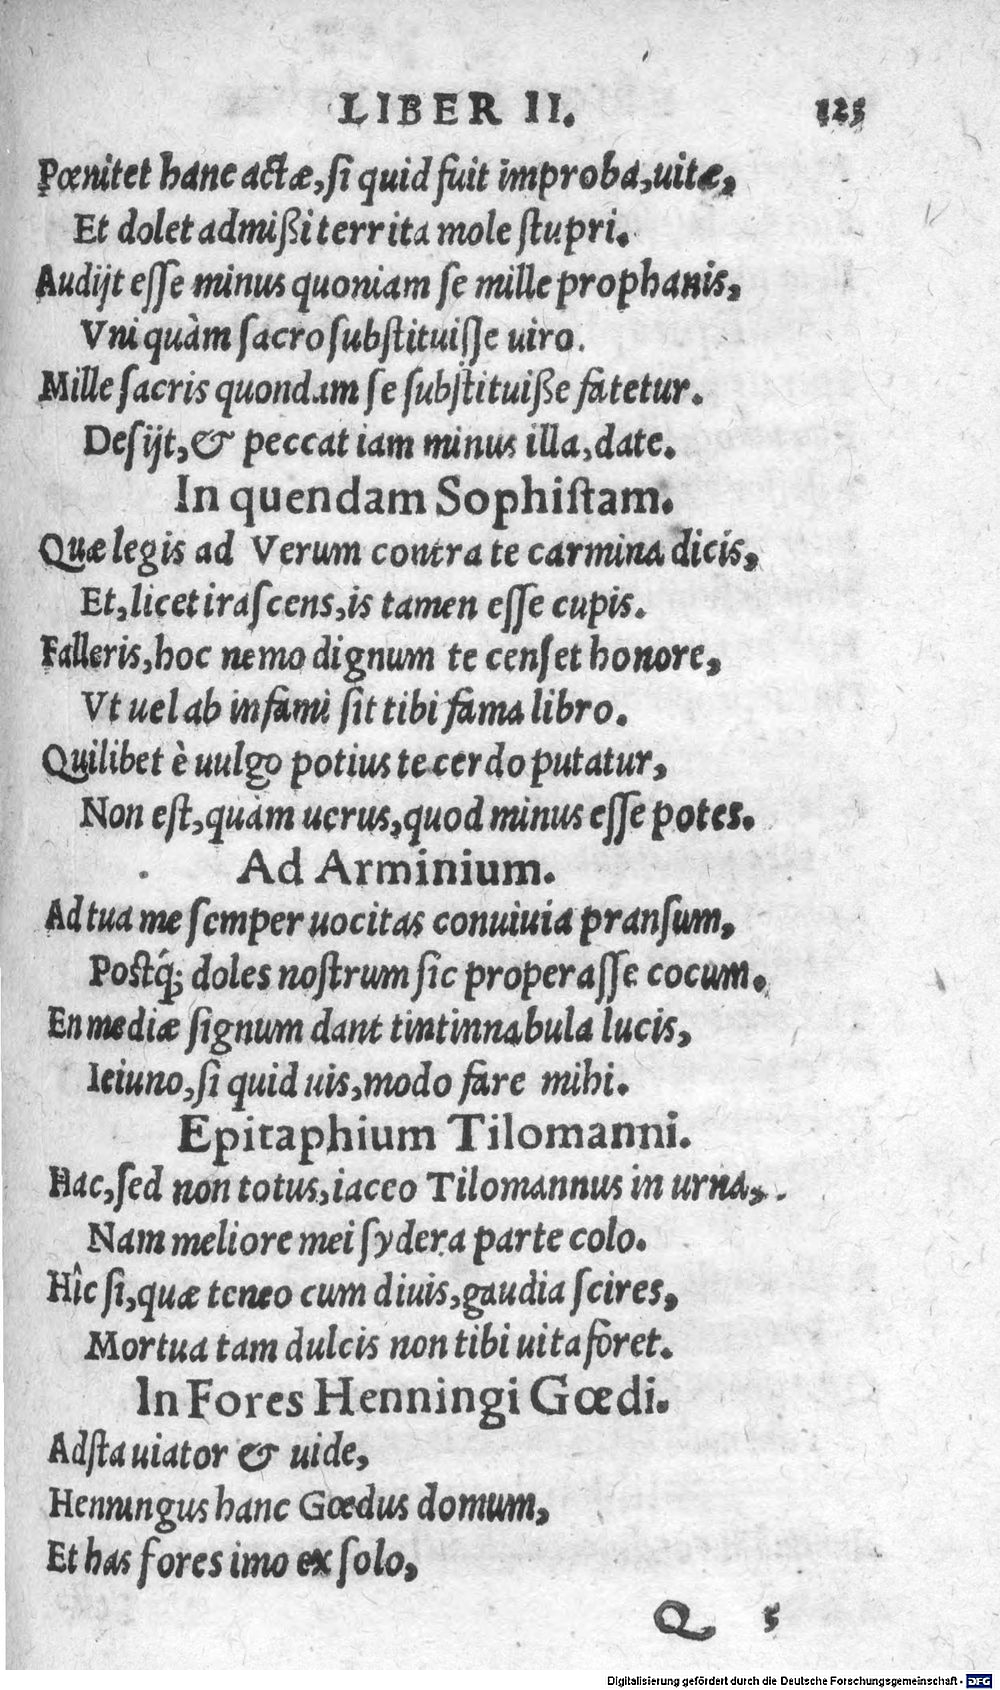 LIBER II. 125
Pœnitet hanc actæ, si quid fuit improba, uitæ,
Et dolet admißi territa mole stupri.
Audijt esse minus quoniam se mille prophanis,
Vni quàm sacro substituisse uiro.
Mille sacris quondam se substituiße fatetur.
Desijt, & peccat iam minus illa, date.
In quendam Sophistam.
Quæ legis ad Verum contra te carmina dicis,
Et, licet irascens, is tamen esse cupis.
Falleris, hoc nemo dignum te censet honore,
Vt uel ab infami sit tibi fama libro.
Quilibet è uulgo potius te cerdo putatur,
Non est, quàm uerus, quod minus esse potes.
Ad Arminium.
Ad tua me semper uocitas conuiuia pransum,
Postq́; doles nostrum sic properasse cocum.
En mediæ signum dant tintinnabula lucis,
Ieiuno, si quid uis, modo fare mihi.
Epitaphium Tilomanni.
Hac, sed non totus, iaceo Tilomannus in urna,.
Nam meliore mei sydera parte colo.
Hîc si, quæ teneo cum diuis, gaudia scires,
Mortua tam dulcis non tibi uita foret.
In Fores Henningi Gœdi.
Adsta uiator & uide,
Henningus hanc Gœdus domum,
Et has fores imo ex solo,
Q 5
Digitalisierung gefördert durch die Deutsche Forschungsgemeinschaft - DFG